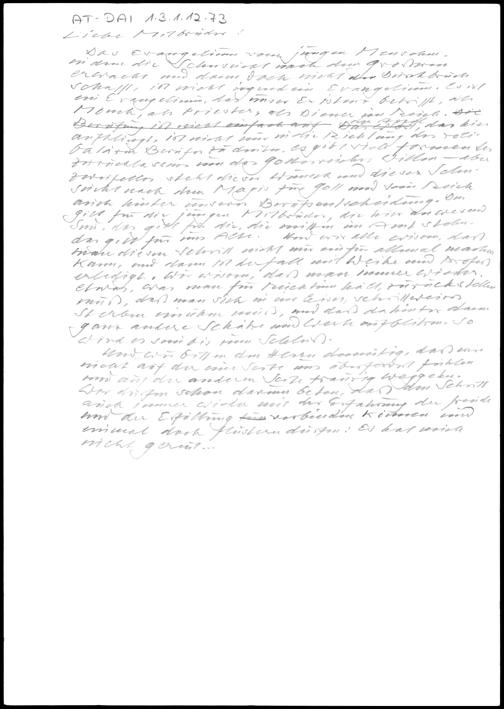 AT-DAI 1.3.1.12.73
Liebe Mitbrüder!
Das Evangelium vom jungen Menschen,
in dem die Sehnsucht nach dem Größeren
erwacht und dann doch nicht den Durchbruch
schafft, ist nicht irgend ein Evangelium. Es ist
ein Evangelium, das unser Existenz betrifft, als
Mensch, als Priester, als Diener im Reich.
Berufung ist nicht einfach auf das
anfhängt, ist nicht nur in der Richtung des zöli-
batären Berufes zu deuten, es gibt viel formen des
zurücklassens um des Gottesreiches Willen – aber
zweifellos steht dieser Wunsch und diese Sehn-
sucht nach dem Magis für Gott und sein Reich
auch hinter unserer Berufsentscheidung. Das
gilt für die jungen Mitbrüder, die hier anwesend
sind, das gilt für die, die mitten im Amt stehn,
das gilt für uns Alte. Und wir alle wissen, daß
man diesen Schritt nicht nur einfür allemal machen
kann, und dann ist der fall mit Weihe und Profeß
erledigt. Wir wissen, daß man immer wieder
etwas, was man für Reichtum hält, zurückstellen
muß, daß man sich in ein leises, schrittweises
Sterben einüben muß, und daß dahinter dann
ganz andere Schätze und Werte aufblühen. So
wird es sein bis zum Schluß.
Und wir bitten den Herrn demütig, daß wir
nicht auf der einen Seite uns überfordert fühlen
und auf der anderen Seite traurig weggehn.
Wir dürfen schon darum beten, daß den Schritt
auch immer wieder mit der Erfahrung der freude
und der Erfüllung verbinden können und
einmal doch flüstern dürfen: Es hat mich
nicht gereut...